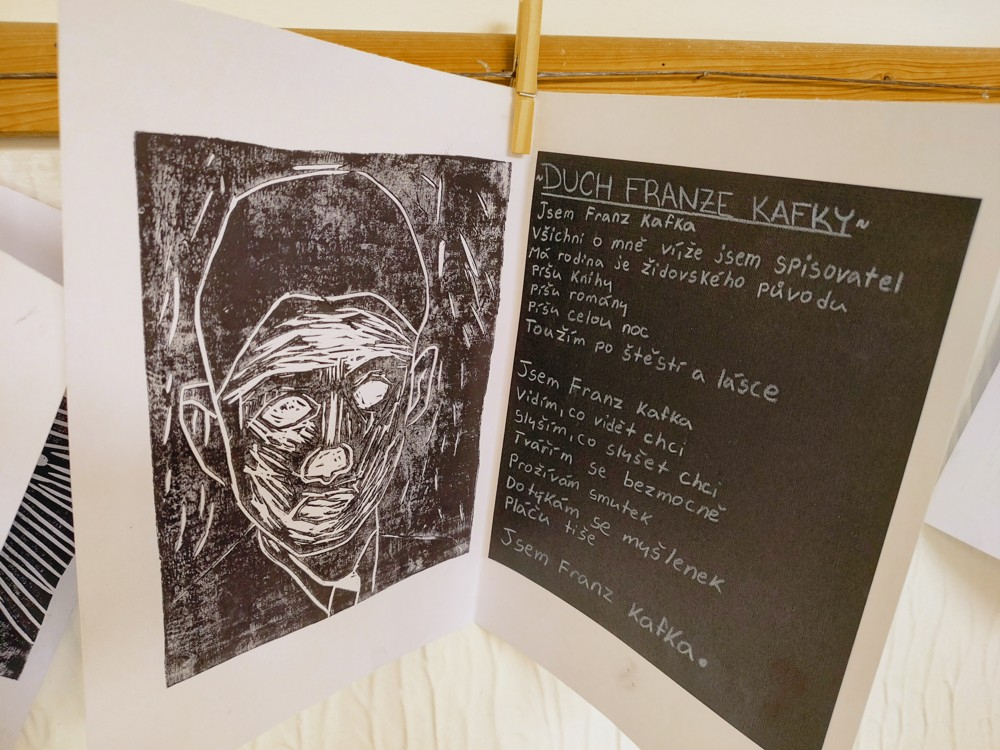 ~DUCH FRANZE KAFKY~
Jsem Franz Kafka
Všichni o mně víže jsem spisovatel
Má rodina je židovského původu
Píšu knihy
Píšu romány
Píšu celou noc
Toužím po štěstí a lásce
Jsem Franz Kafka
Vidím, co vidět chci
Slyším, co slyšet chci
Tvářím se bezmocně
Prožívám smutek
Dotýkám se myšlenek
Pláču tiše
Jsem Franz Kafka.